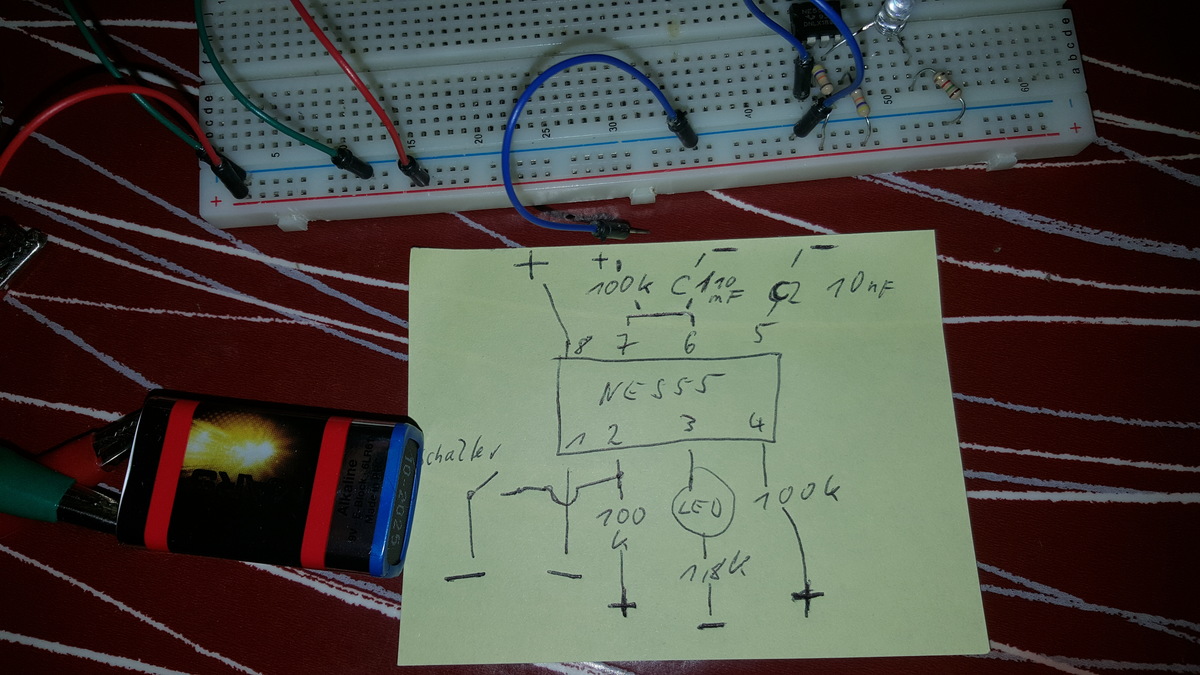 a b c d e
5
15
20
25
30
40
50
60
-
+
+
+ +
100k C1 10 mF C2 10nF
- -
8 7 6 5
NE555
1 2 3 4
chalter
100 k
LED
100k
1,8k
- -
+
-
+
Alkaline
10.2025